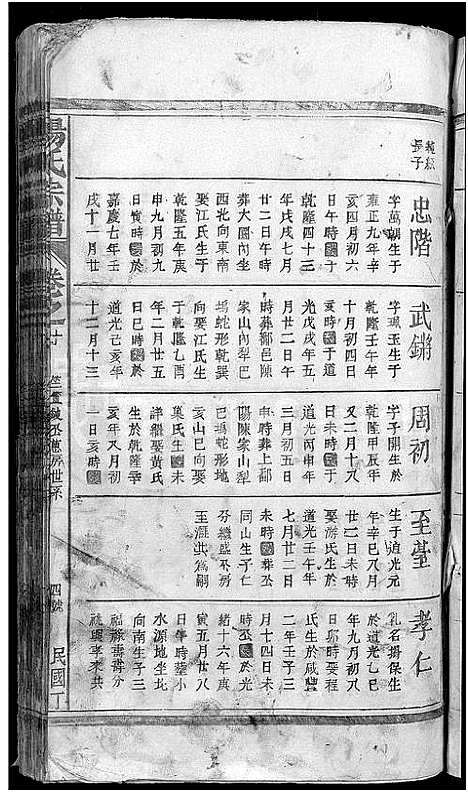 楊氏宗譜
卷之
四號
民國丁
長子
忠階
字萬朝生于
雍正九年辛
亥四月初六
日午時
于
乾隆四十三
年戊戌七月
廿二日午時
葬大園內坐
西北向東南
娶江氏生于
乾隆五年庚
申九月初九
日寅時
於
嘉慶七年壬
戌十一月廿
武鏘
字珮玉生于
乾隆壬午年
十月初四日
亥時
于道
光戊戌年五
月廿二日午
時葬鄱邑陳
家山內犁巴
塢蛇形乾巽
向娶江氏生
于乾隆乙酉
年二月廿五
日巳時
於
道光己亥年
十二月十三
周初
字子開生於
乾隆甲辰年
又二月十八
日未時
于
道光丙申年
三月初五日
申時葬上鄱
陽陳家山犁
巴塢蛇形地
亥山巳向娶
葉氏生
未
詳繼娶黃氏
生於乾隆辛
亥年六月初
一日亥時
至
生于道光元
年辛巳八月
廿二日未時
娶游氏生於
道光壬午年
七月廿二日
未時
葬
同山生子仁
孝仁
乳名掦保生
於道光乙巳
年九月初六
日卯時娶程
氏生於咸豐
二年壬子三
月十四日未
時
於光
緒十六年庚
寅五月廿八
日午時葬小
水源地坐北
向南生子三
福祿壽壽分